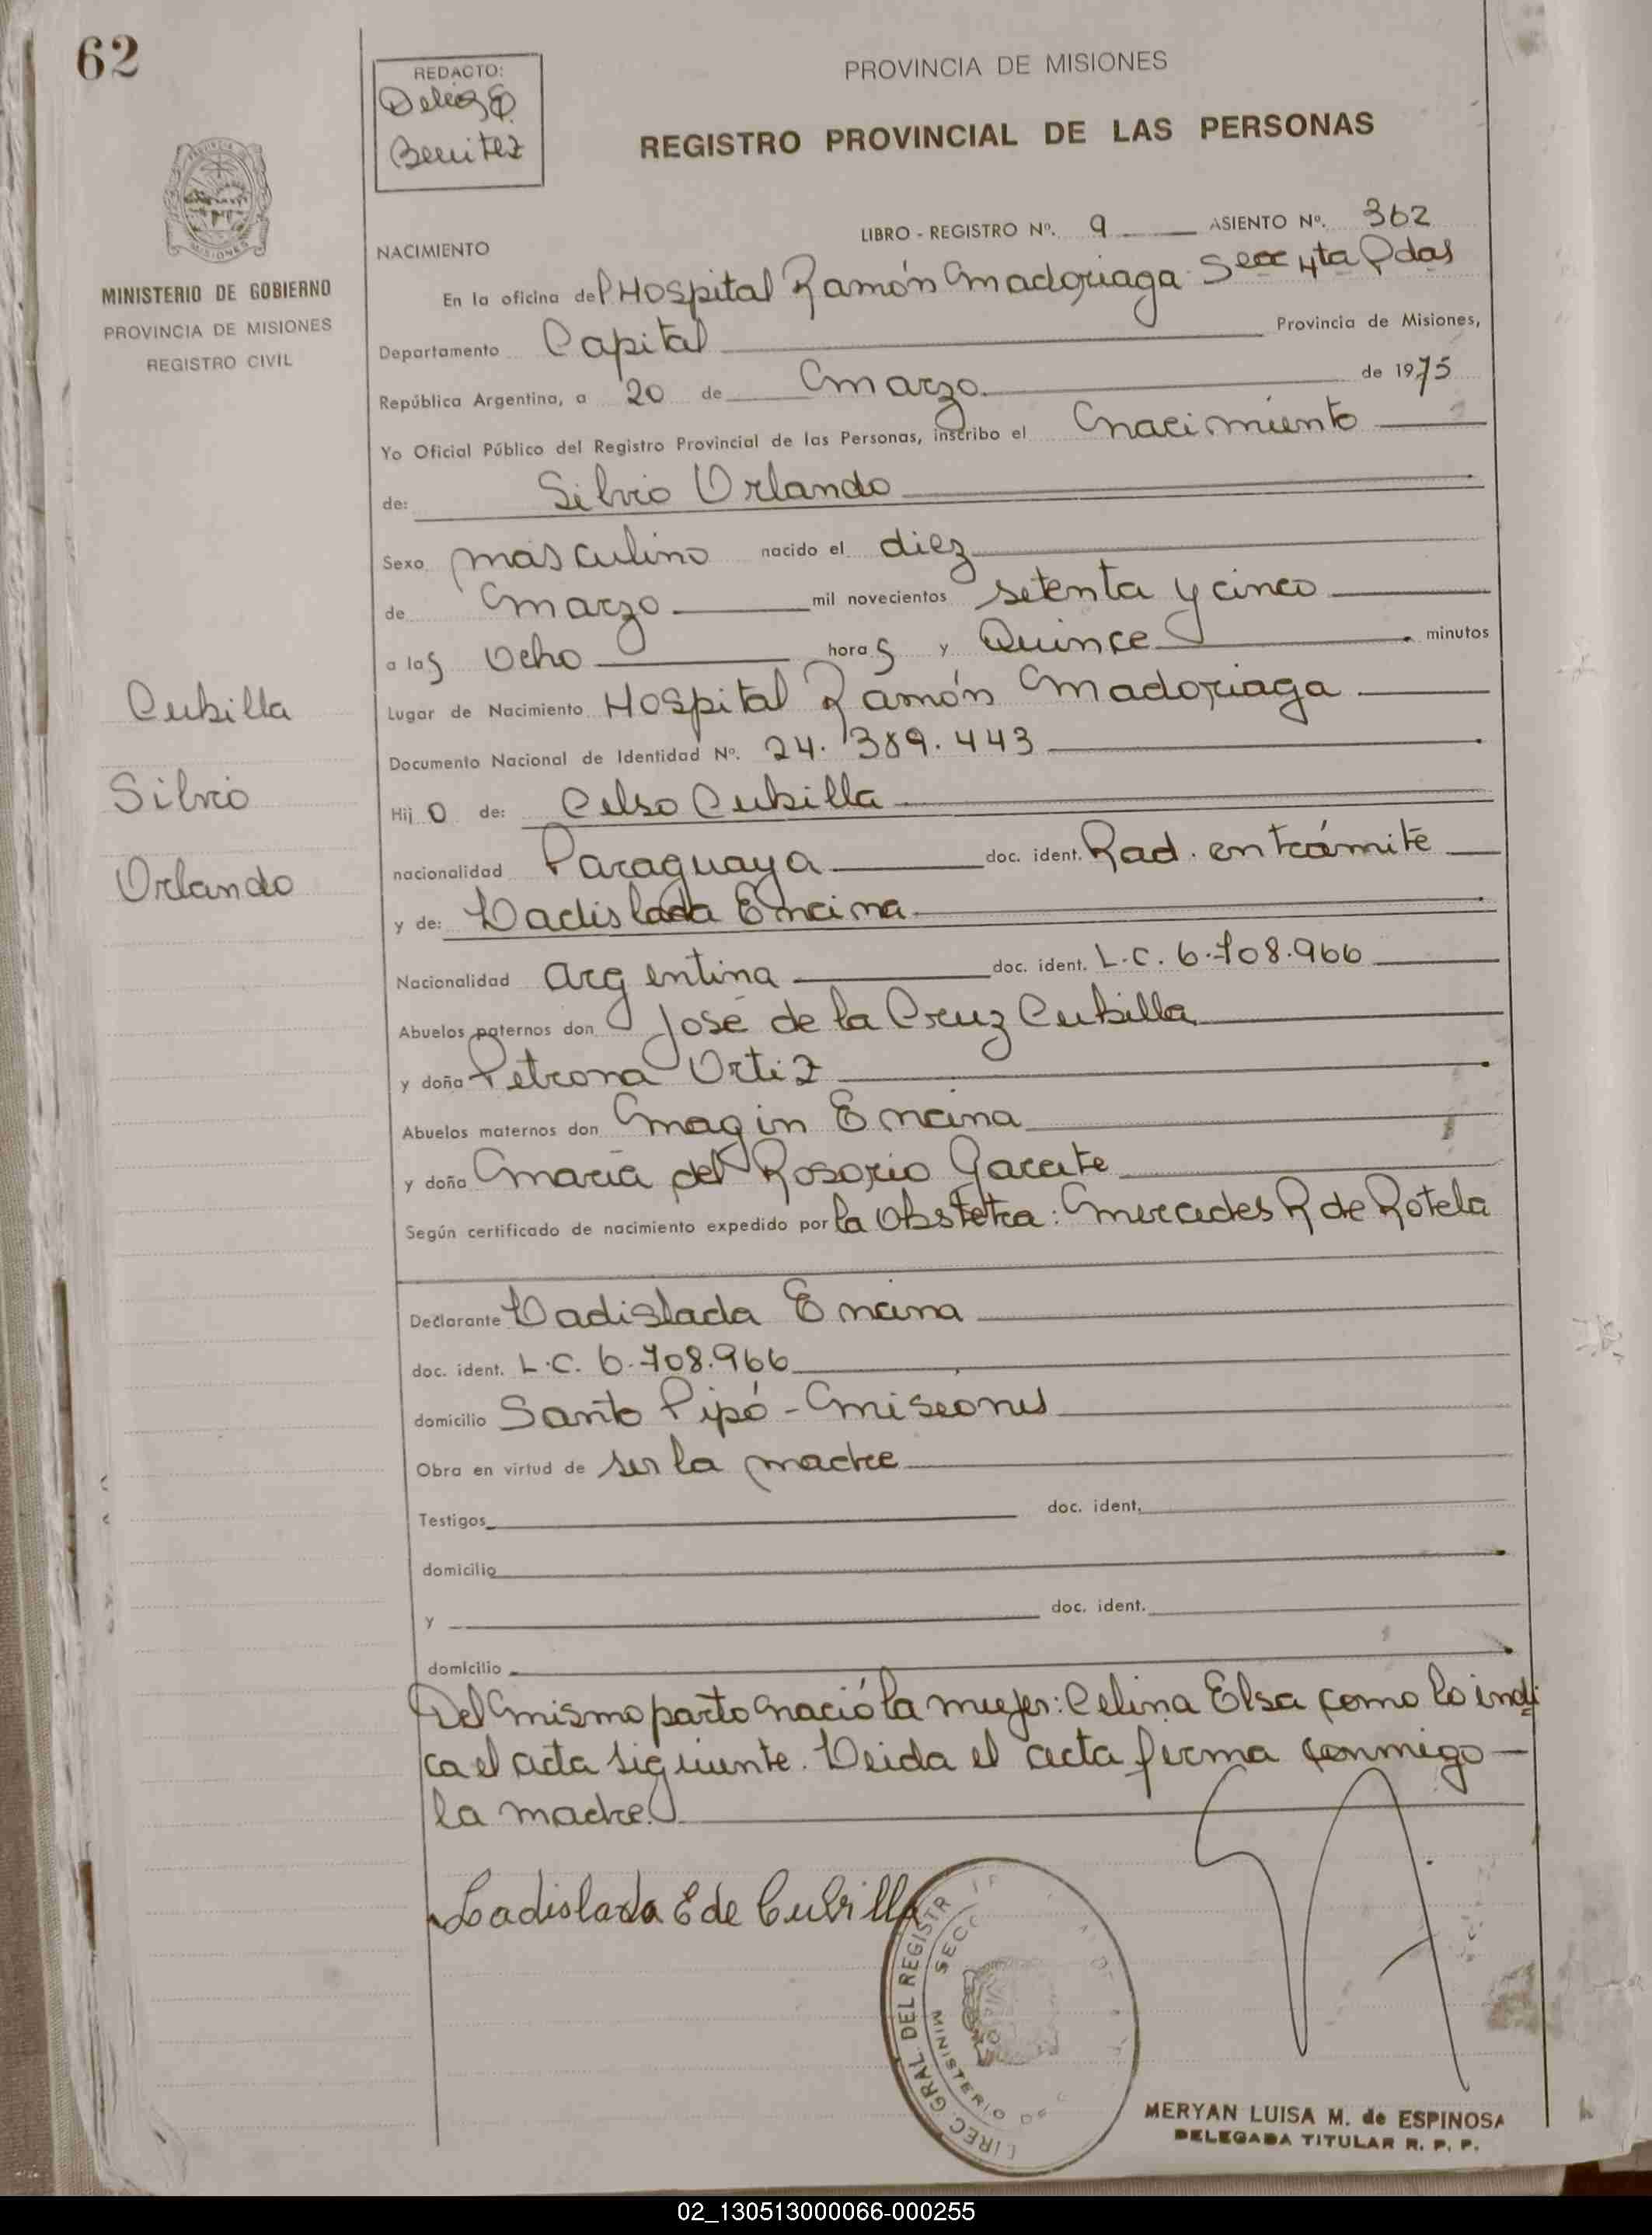 62
REDACTO:
Delia E.
Benitez
PROVINCIA DE MISIONES
REGISTRO PROVINCIAL DE LAS PERSONAS
MINISTERIO DE GOBIERNO
PROVINCIA DE MISIONES
REGISTRO CIVIL
LIBRO - REGISTRO Nº. 9 ASIENTO Nº. 362
NACIMIENTO
En la oficina del Hospital Ramón Madoriaga Secc 4ta Pdas
Departamento Capital Provincia de Misiones,
República Argentina, a 20 de marzo de 1975
Yo Oficial Público del Registro Provincial de las Personas, inscribo el nacimiento
de: Silvio Orlando
Sexo masculino nacido el diez
de marzo mil novecientos setenta y cinco
a las Ocho horas y Quince minutos
Lugar de Nacimiento Hospital Ramón Madoriaga
Documento Nacional de Identidad Nº. 24.389.443
Cubilla
Silvio
Orlando
Hijo de: Celso Cubilla
nacionalidad Paraguaya doc. ident. Rad. en trámite
y de: Ladislada Encina
Nacionalidad argentina doc. ident. L.C. 6.708.966
Abuelos paternos don José de la Cruz Cubilla
y doña Petrona Ortiz
Abuelos maternos don Magin Encina
y doña María del Rosorio Garcete
Según certificado de nacimiento expedido por la Obstetra: Mercedes R de Rotela
Declarante Ladislada Encina
doc. ident. L.C. 6.708.966
domicilio Santo Pipó - Misiones
Obra en virtud de ser la madre
Testigos doc. ident.
domicilio
y doc. ident.
domicilio
Del mismo parto nació la mujer: Celina Elsa como lo indi
ca el acta siguiente. Leida el acta firma conmigo
la madre.
Ladislada E de Cubilla
DIREC. GRAL. DEL REGISTR
MINISTERIO DE
SECC
MERYAN LUISA M. de ESPINOSA
DELEGADA TITULAR R. P. P.
02_130513000066-000255